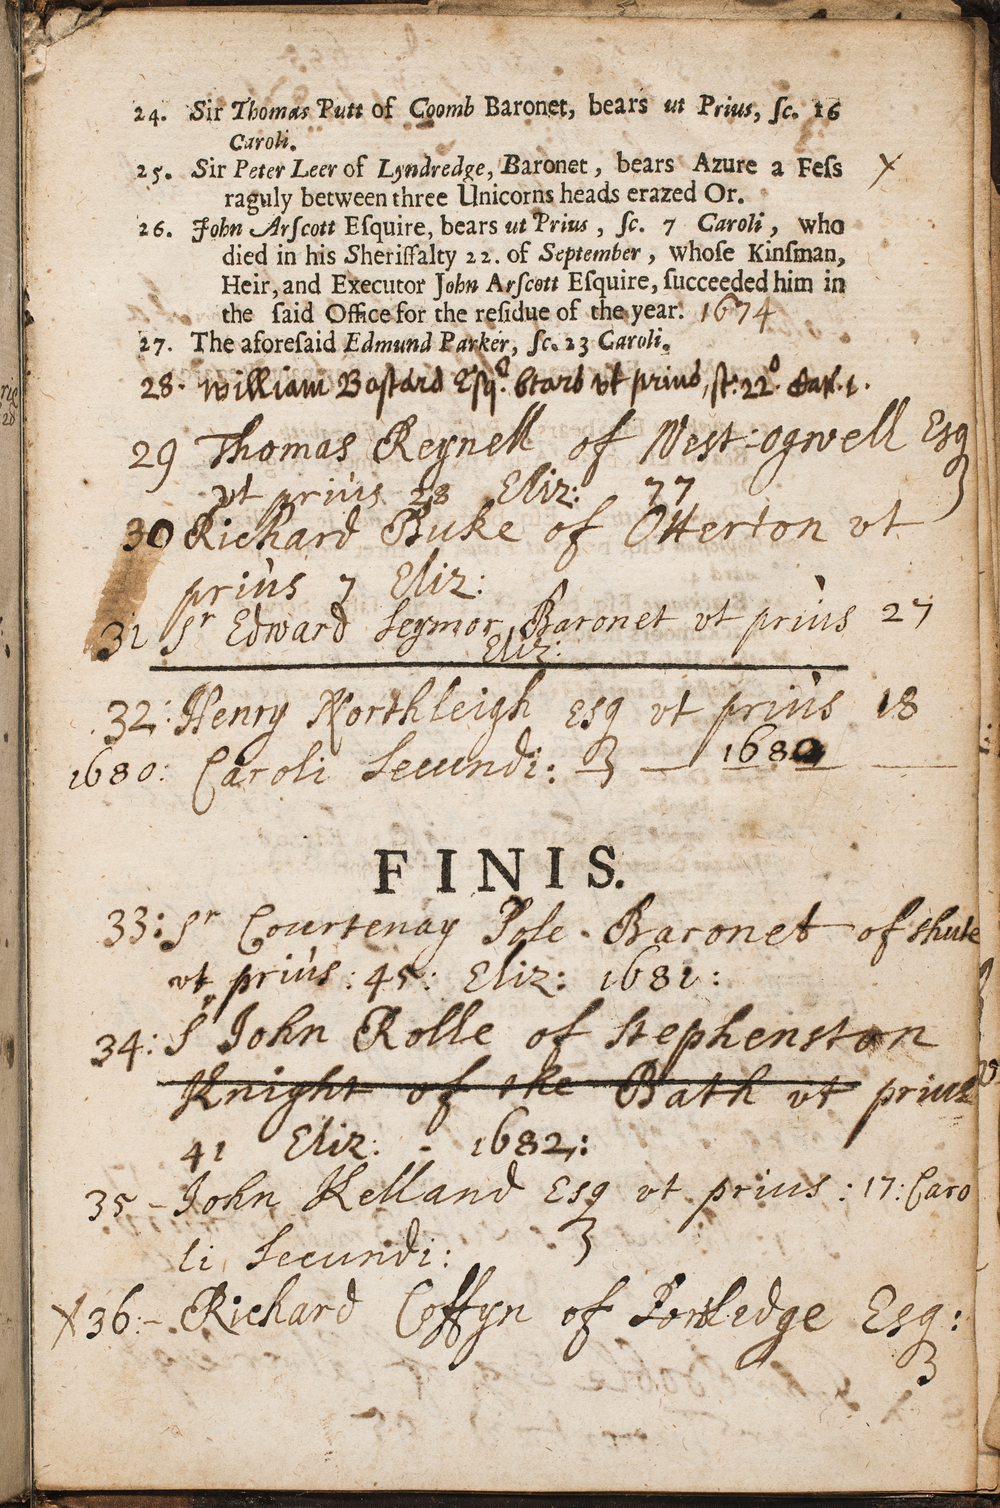 24. Sir Thomas Putt of Coomb Baronet, bears ut Prius, ſc. 16
Caroli.
25. Sir Peter Leer of Lyndredge, Baronet, bears Azure a Feſs
raguly between three Unicorns heads erazed Or.
26. John Arſcott Eſquire, bears ut Prius, ſc. 7 Caroli, who
died in his Sheriffalty 22. of September, whoſe Kinſman,
Heir, and Executor John Arſcott Eſquire, ſucceeded him in
the ſaid Office for the reſidue of the year. 1674
27. The aforeſaid Edmund Parker, ſc. 23 Caroli.
28. William Bastard Esqr. beard vt prius, sc: 22o Car. 1.
29 Thomas Reynell of West-ogwell Esq
vt prius 28 Eliz: 77
30 Richard Duke of Otterton vt
prius 7 Eliz:
31 Sr Edward Seymor Baronet vt prius 27
Eliz:
32: Henry Northleigh Esq vt prius 18
1680: Caroli Secundi: 1680
FINIS.
33: Sr Courtenay Pole Baronet of shute
vt prius: 45: Eliz: 1681:
34: Sr John Rolle of Stephenston
Knight of the Bath vt prius
41 Eliz: - 1682:
35 - John Kelland Esq vt prius: 17: Caro
li Secundi:
X 36:- Richard Coffyn of Portledge Esq: